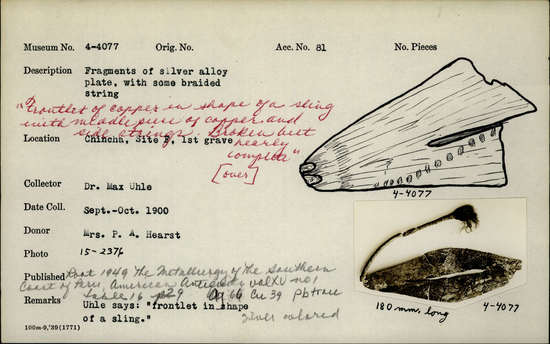 Museum No. 4-4077 Orig. No. Acc. No. 81 No. Pieces
Description Fragments of silver alloy
plate, with some braided
string
"Frontlet of copper in shape of a sling
with middle piece of copper and
side strings. Broken but
nearly
complete"
[over]
Location Chincha, Site F, 1st grave
4-4077
Collector Dr. Max Uhle
Date Coll. Sept.-Oct. 1900
Donor Mrs. P. A. Hearst
Photo 15-2376
Published Root 1949 The Metallurgy of the Southern
Coast of Peru, American Antiquity vol XV no 1
Table 16 p 29 Ag 60 Cu 39 Pb trace
Remarks Uhle says: "frontlet in shape
of a sling."
silver colored
180 mm. long 4-4077
100m-9,'39(1771)